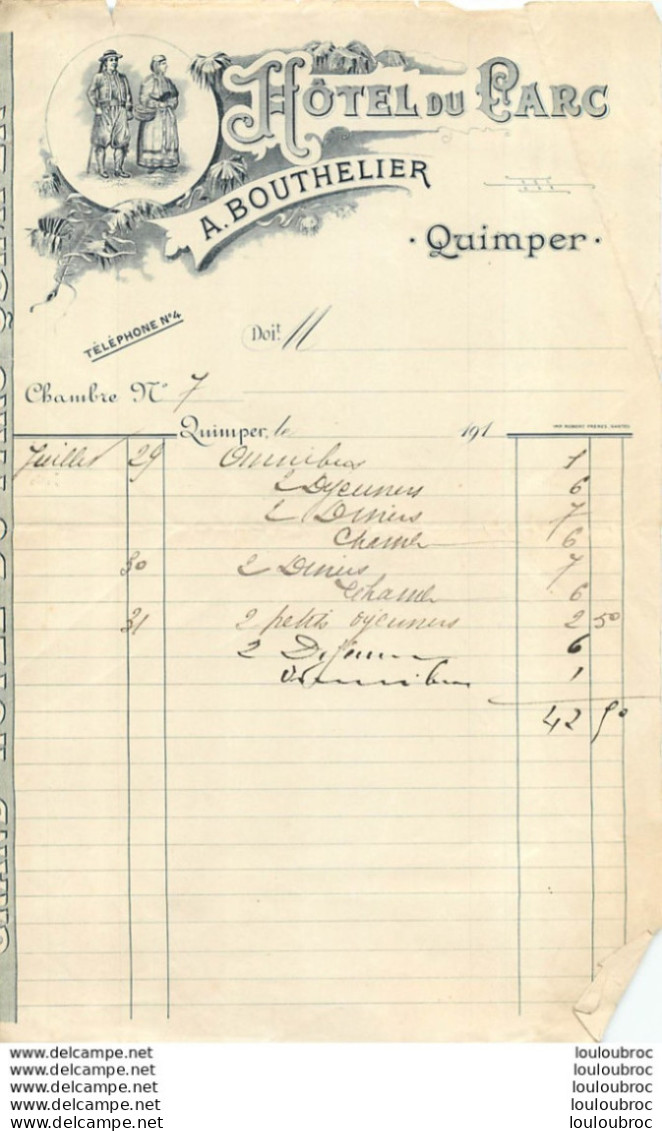 HÔTEL DU PARC
A. BOUTHELIER
· Quimper ·
TÉLÉPHONE Nº 4
Doit M
Chambre Nº 7
Quimper, le 191
IMP. ROBERT FRÈRES, NANTES
Juillet 29 Omnibus 1
2 Dejeuners 6
2 Diners 7
Chambre 6
30 2 Diners 7
Chambre 6
31 2 petits djeuners 2 50
2 Dejeuners 6
Omnibus 1
42 50
GRAND HÔTEL DU PARC QUIMPER
www.delcampe.net louloubroc
www.delcampe.net louloubroc
www.delcampe.net louloubroc
www.delcampe.net louloubroc
www.delcampe.net louloubroc